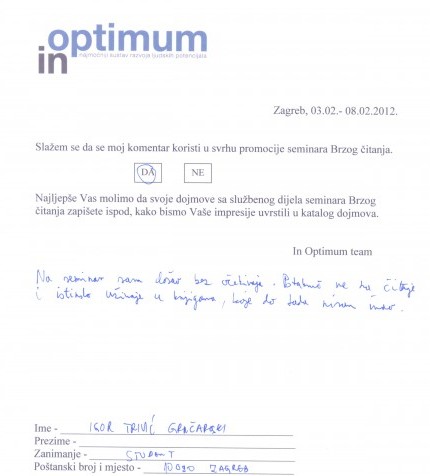 in optimum
najmoćniji sustav razvoja ljudskih potencijala
Zagreb, 03.02.- 08.02.2012.
Slažem se da se moj komentar koristi u svrhu promocije seminara Brzog čitanja.
DA NE
Najljepše Vas molimo da svoje dojmove sa službenog dijela seminara Brzog
čitanja zapišete ispod, kako bismo Vaše impresije uvrstili u katalog dojmova.
In Optimum team
Na seminar sam došao bez očekivanja. Potaknuo me na čitanje
i istinsko uživanje u knjigama, koje do tada nisam imao.
Ime - IGOR TRIVIĆ GRAČARSKI
Prezime -
Zanimanje - STUDENT
Poštanski broj i mjesto - 10020 ZAGREB